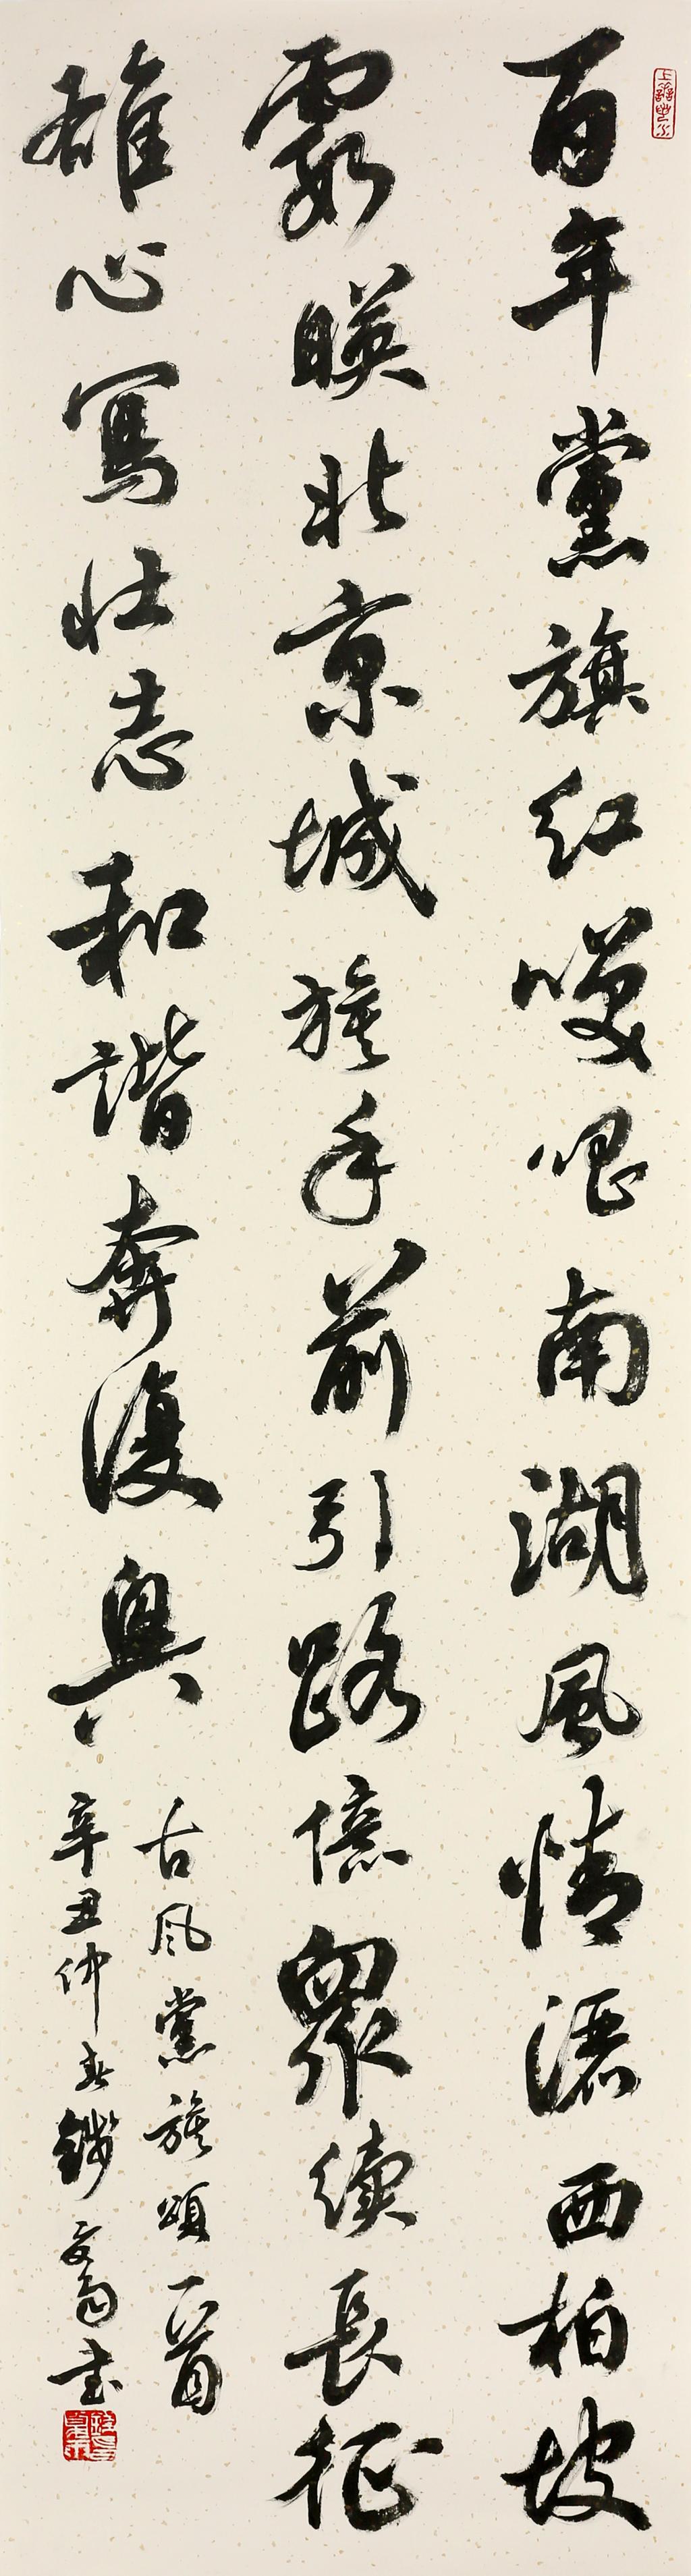 百年黨旗紅南湖風情灑西柏坡
霞暎北京城旗手前引路億眾續長征
雄心寫壯志和諧奔復興
古風黨旗頌一首
辛丑仲春錢書